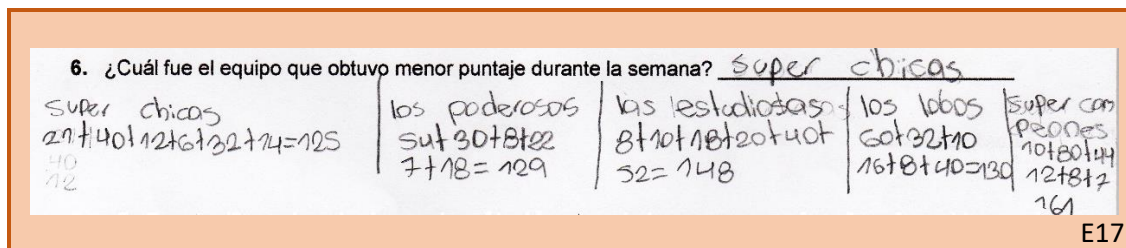 6. ¿Cuál fue el equipo que obtuvo menor puntaje durante la semana? super chicas
super chicas
21+40+12+6+32+14=125
40
12
los poderosos
54+30+8+22
7+18=129
las estudiosas
8+10+18+20+40+
52=148
los lobos
60+32+10
16+8+40=130
super cam
peones
10+80+44
12+8+7
161
E17